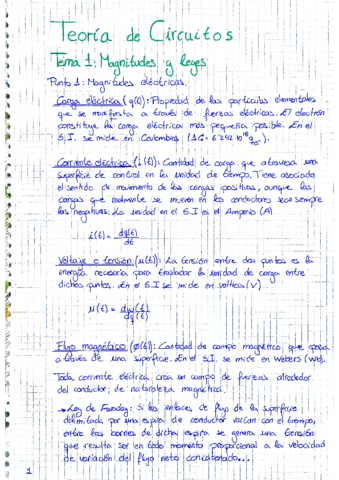 Teoría de Circuitos
Tema 1: Magnitudes y leyes
Punto 1: Magnitudes eléctricas.
Carga eléctrica (q(t)): Propiedad de las partículas elementales
que se manifiesta a través de fuerzas eléctricas. El electrón
constituye la carga eléctrica más pequeña posible. En el
S.I. se mide en Coulombios (1C = 6'242·10¹⁸
Corriente eléctrica (i(t)): Cantidad de carga que atraviesa una
superficie de control en la unidad de tiempo. Tiene asociada
el sentido de movimiento de las cargas positivas, aunque las
cargas que realmente se mueven en los conductores sean siempre
las negativas. La unidad en el S.I es el Amperio (A)
i(t) = dq(t)/dt
Voltaje o tensión (u(t)): La tensión entre dos puntos es la
energía necesaria para trasladar la unidad de carga entre
dichos puntos. En el S.I se mide en voltios (V)
u(t) = dw(t)/dq(t)
Flujo magnético (φ(t)): Cantidad de campo magnético que pasa
a través de una superficie. En el S.I. se mide en Webers (Wb).
Toda corriente eléctrica crea un campo de fuerzas alrededor
del conductor, de naturaleza magnética.
Ley de Faraday: Si los enlaces de flujo de la superficie
delimitada por una espira de conductor varían con el tiempo,
entre los bornes de dicha espira se genera una tensión
que resulta ser en todo momento proporcional a la velocidad
de variación del flujo neto concatenado...
1